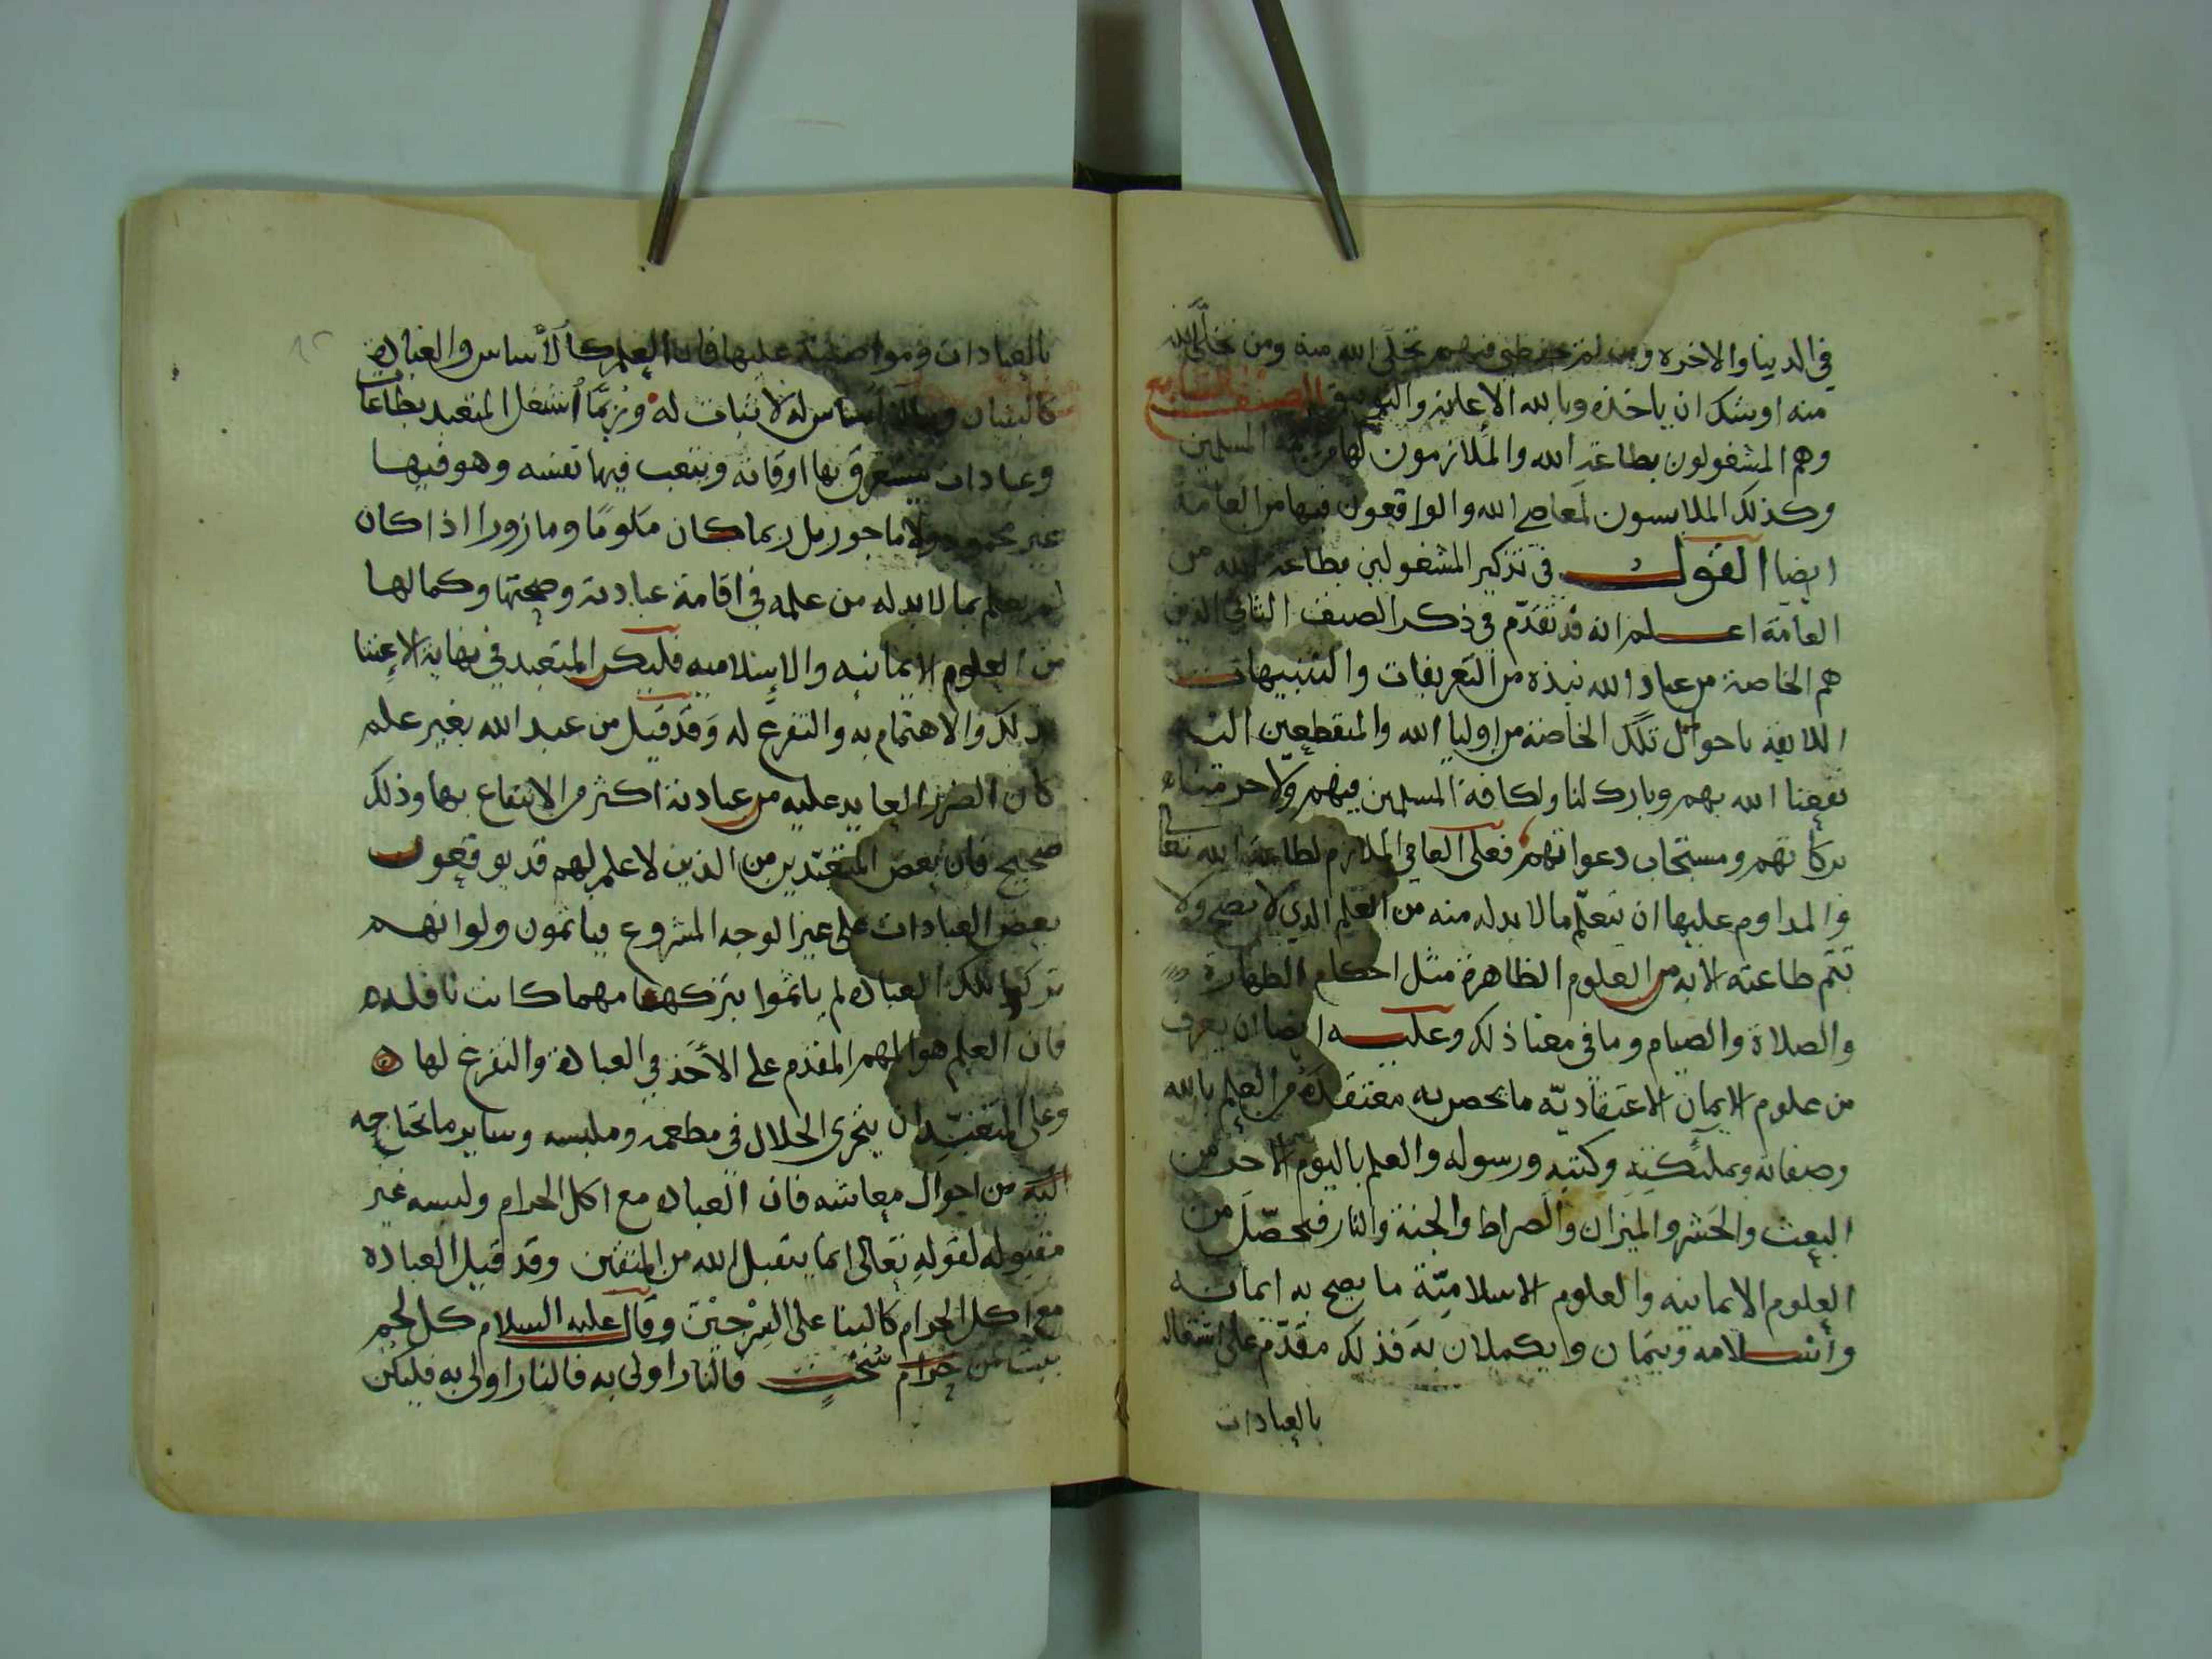 في الدينا والاخره ومن لم تخلى الله منه ومن تخلَّى الله
منه اوشك ان ياخذه وبالله الاعانه والتوفيق الصنف السابع
وهم المشغولون بطاعةِ الله والملازمون لها من عامة المسلمين
وكذلك الملابسون لمعاصي الله والواقعون فيها من العامة
ايضا القول في تذكير المشغولين بطاعة الله من
العامّة اعلم انه قد تقدّم في ذكر الصنف الثاني الذين
هم الخاصة من عباد الله نبذه من التعريفات والتنبيهات
اللايقة باحوال تلك الخاصة من اوليا الله والمنقطعين اليه
نفعنا الله بهم وبارك لنا ولكافة المسلمين فيهم ولا حرمنا
بركاتهم ومستجاب دعواتهم فعلى العامي الملازم لطاعة الله تعالى
والمداوم عليها ان يتعلّم ما لا بد له منه من العلم الذي لا تصح ولا
تتم طاعته الا به من العلوم الظاهرة مثل احكام الطهارة
والصلاة والصيام وما في معنا ذلك وعليه ايضا ان يعرف
من علوم الايمان الاعتقاديّه ما يحصن به معتقده من العلم بالله
وصفاته وبملئكتِهِ وكتبه ورسوله والعلم باليوم الاخر من
البعث والحشر والميزان والصراط والجنة والنار فيحصّل من
العلوم الايمانيه والعلوم الاسلاميّة ما يصح به ايمانه
وأسلامه ويتمان ويكملان به فذلك مقدّم على اشتغاله
بالعبادات
بالعبادات ومواضبته عليها فان العلم كالأساس والعباده
كالبنيان وما لا اساس له لا ثبات له وربَّما أشتغل المتعبد بطاعات
وعبادات يستغرق بها اوقاته ويتعب فيها نفسه وهو فيها
غير محمود ولا ماجور بل ربما كان ملومًا ومازورا اذا كان
لم يعلم بما لا بد له من علمه في اقامة عبادته وصحتها وكمالها
من العلوم الايمانيه والإسلاميه فليكن المتعبد في نهاية الاعتنا
بذلك والاهتمام به والتفرغ له وَقد قيل من عبد الله بغير علم
كان الضرر العايد عليه من عبادته اكثر من الانتفاع بها وذلك
صحيح فان بعض المتعبّدين من الذين لا علم لهم قد يوقعون
بعض العبادات على غير الوجه المشروع فياثمون ولو انهم
تركوا تلك العباده لم ياثموا بتركها مهما كانت نافله
فان العلم هو المهم المقدم على الأخذ في العبادة والتفرغ لها
وعلى المتعبّد ان يتحرى الحلال في مطعمه وملبسه وساير ما تحتاجه
اليه من احوال معاشه فان العباده مع اكل الحرام ولبسه غير
مقبوله لقوله تعالى انما يتقبل الله من المتقين وقد قيل العباده
مع اكل الحرام كالبنا على السِرْجِيْنَ وقال عليه السلام كل لحم
ينبت من حرام سُحْتٍ فالنار اولى به فالنار اولى به فليكن